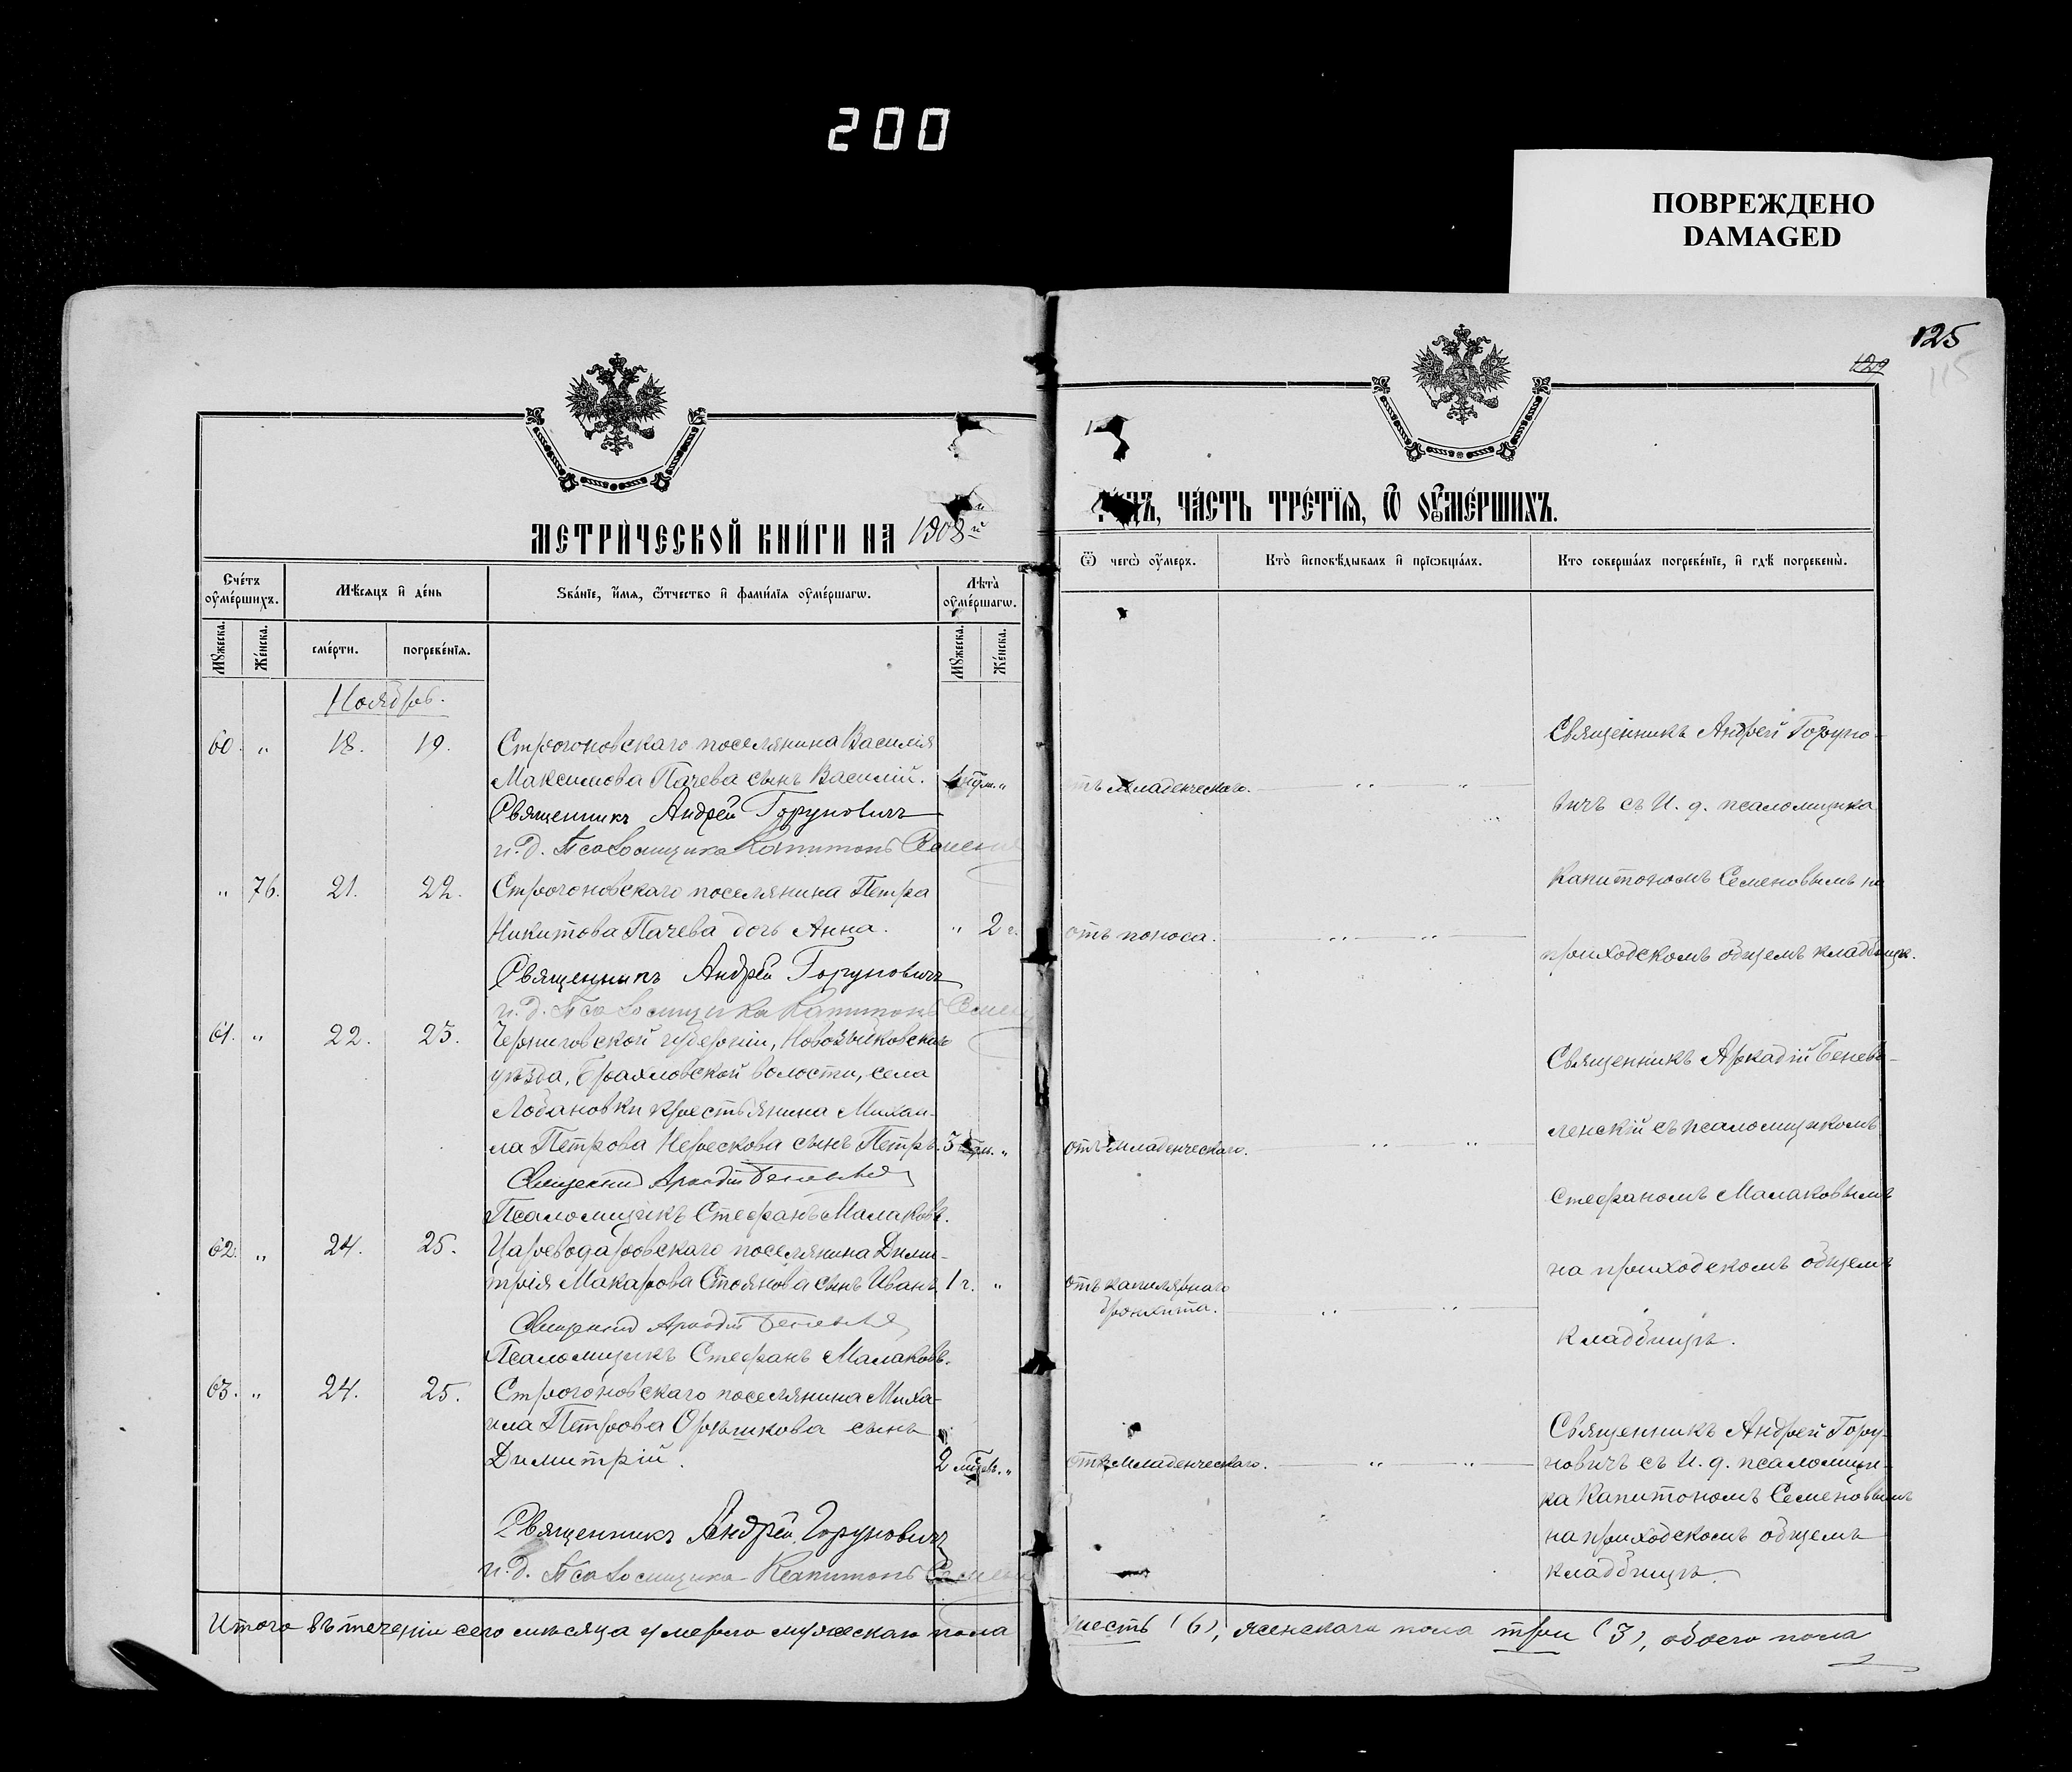 200
ПОВРЕЖДЕНО
DAMAGED
125
129
115
МЕТРИ́ЧЕСКОЙ КНИ́ГИ НА 1908й
ЧА́СТЬ ТРЕ́ТІѦ, Ѿ ОУ҆МЕ́РШИХЪ.
Сче́тъ оу҆ме́ршихъ.
Мꙋ́жеска.
Же́нска.
Мѣ́сѧцъ и҆ де́нь
сме́рти.
погребе́нїѧ.
Ѕва́нїе, и҆́мѧ, ѻ҆́тчество и҆ фами́лїѧ оу҆ме́ршагѡ.
Лѣ́та оу҆ме́ршагѡ.
Мꙋ́жеска.
Же́нска.
Ѿ чегѡ̀ оу҆́меръ.
Кто̀ и҆сповѣ́дывалъ и҆ прїѡбща́лъ.
Кто соверша́лъ погребе́нїе, и҆ гдѣ̀ погребены̀.
Ноябрь.
60. " 18. 19. Строгоновскаго поселянина Василія
Максимова Пачева сынъ Василій.
младенческаго. " "
Священникъ Андрей Горуновичъ
и.д. Псаломщика Капитонъ
Священникъ Андрей Горуно-
вичъ съ И. д. псаломщика
Капитономъ Семеновымъ на
приходскомъ общемъ кладбищѣ.
" 76. 21. 22. Строгоновскаго поселянина Петра
Никитова Пачева дочь Анна. " 2 г.
отъ поноса. " "
Священникъ Андрей Горуновичъ
и.д. Псаломщика Капитонъ
61. " 22. 23. Черниговской губерніи, Новозыбковскаго
уѣзда, Брахловской волости, села
Лобановки крестьянина Михаи-
ла Петрова сынъ Петръ. 3 "
отъ младенческаго. " "
Священникъ Аркадій
Псаломщикъ Стефанъ Малаковъ.
Священникъ Аркадій Бенево-
ленскій съ псаломщикомъ
Стефаномъ Малаковымъ
на приходскомъ общемъ
кладбищѣ.
62. " 24. 25. Цареводаровскаго поселянина Дими-
трія Макарова Стоянова сынъ Иванъ 1 г. "
отъ капилярнаго
бронхита. " "
Священникъ Аркадій
Псаломщикъ Стефанъ Малаковъ.
63. " 24. 25. Строгоновскаго поселянина Миха-
ила Петрова Орѣшкова сынъ
Димитрій. 2 "
отъ младенческаго. " "
Священникъ Андрей Горуновичъ
и.д. Псаломщика Капитонъ
Священникъ Андрей Гору-
новичъ съ И. д. псаломщи-
ка Капитономъ Семеновымъ
на приходскомъ общемъ
кладбищѣ.
Итого въ теченіи сего мѣсяца умерло мужескаго пола шесть (6), женскаго пола три (3), обоего пола